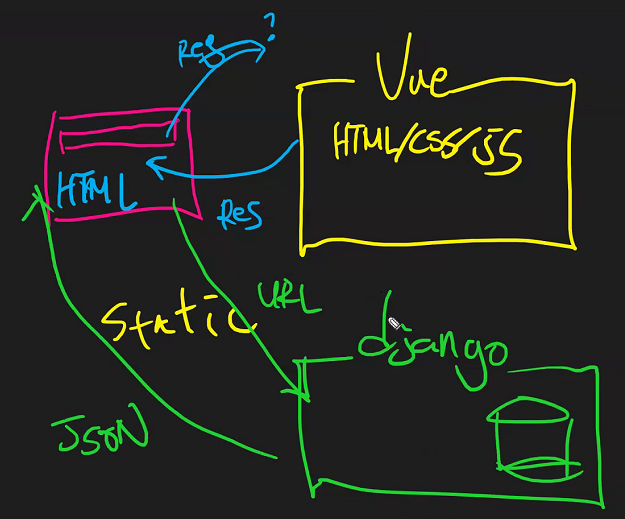 Req ?
Vue
HTML/CSS/JS
HTML
Res
URL
Static
django
JSON